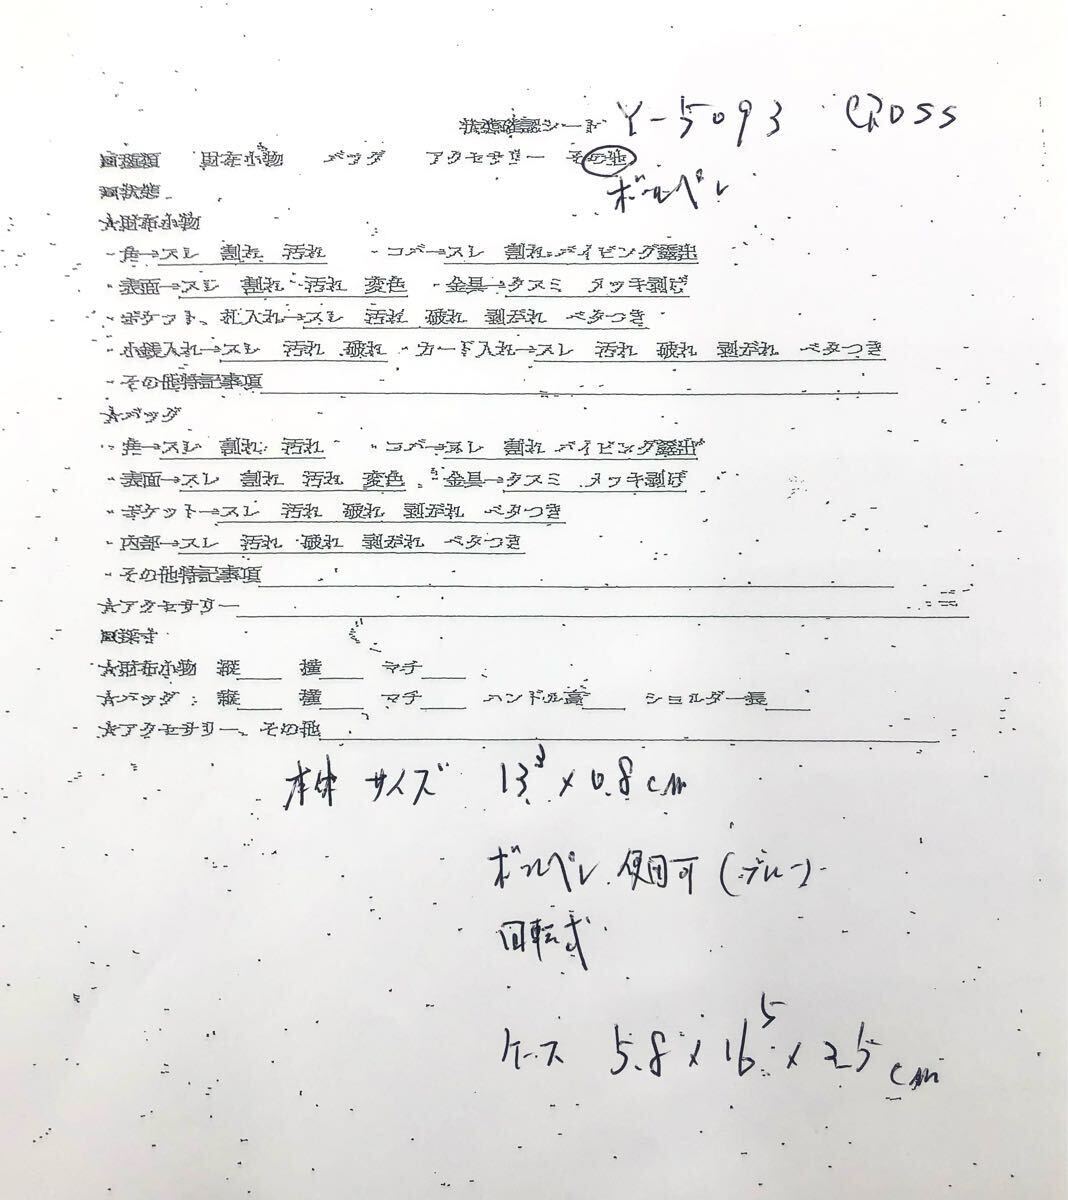 状態確認シート Y-5093 CROSS
■種類 財布小物 バッグ アクセサリー その他
ボールペン
■状態
★財布小物
・角→スレ 割れ 汚れ ・コバ→スレ 割れ パイピング露出
・表面→スレ 割れ 汚れ 変色 ・金具→クスミ メッキ剥げ
・ポケット、札入れ→スレ 汚れ 破れ 剥がれ ベタつき
・小銭入れ→スレ 汚れ 破れ ・カード入れ→スレ 汚れ 破れ 剥がれ ベタつき
・その他特記事項
★バッグ
・角→スレ 割れ 汚れ ・コバ→スレ 割れ パイピング露出
・表面→スレ 割れ 汚れ 変色 ・金具→クスミ メッキ剥げ
・ポケット→スレ 汚れ 破れ 剥がれ ベタつき
・内部→スレ 汚れ 破れ 剥がれ ベタつき
・その他特記事項
★アクセサリー
■採寸
★財布小物 縦 横 マチ
★バッグ: 縦 横 マチ ハンドル高 ショルダー長
★アクセサリー、その他
本体サイズ 13.3 x 0.8 cm
ボールペン 使用可 (ブルー)
回転式
ケース 5.8 x 16.5 x 2.5 cm